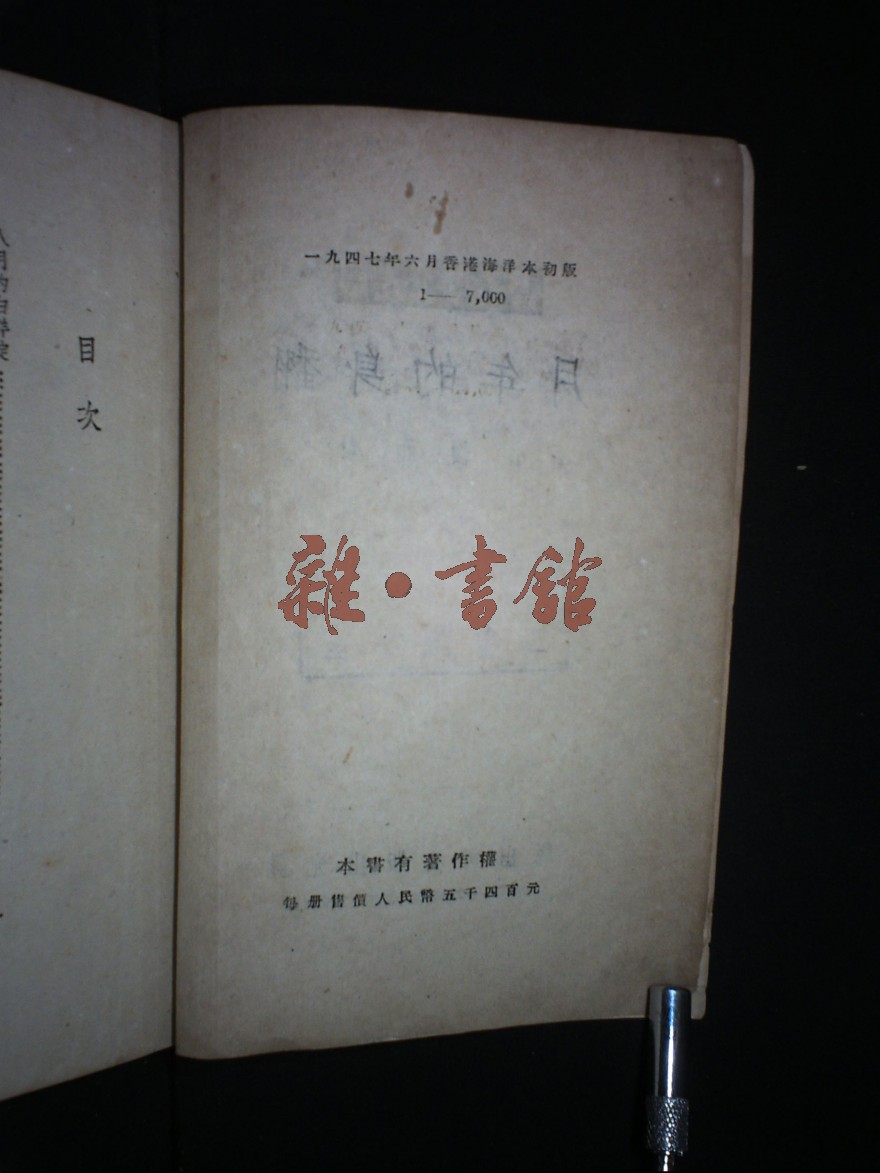 一九四七年六月香港海洋本初版
1— 7,000
雜·書館
本書有著作權
每册售價人民幣五千四百元
目次